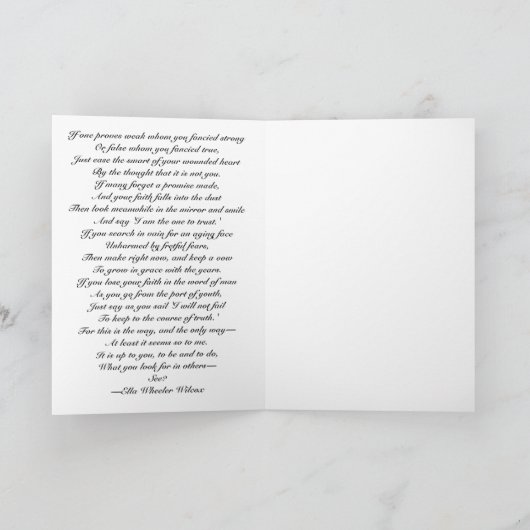 If one proves weak whom you fancied strong
Or false whom you fancied true,
Just ease the smart of your wounded heart
By the thought that it is not you.
If many forget a promise made,
And your faith falls into the dust
Then look meanwhile in the mirror and smile
And say 'I am the one to trust.'
If you search in vain for an aging face
Unharmed by fretful fears,
Then make right now, and keep a vow
To grow in grace with the years.
If you lose your faith in the word of man
As you go from the port of youth,
Just say as you sail 'I will not fail
To keep to the course of truth.'
For this is the way, and the only way—
At least it seems so to me.
It is up to you, to be and to do,
What you look for in others—
See?
—Ella Wheeler Wilcox